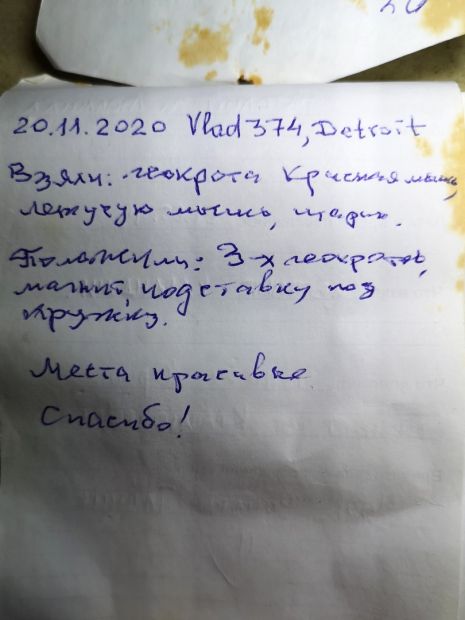 20.11.2020 Vlad374, Detroit
Взяли: геокрота Красная мышь,
летучую мышь,
Положили: 3-х геокротов,
магнит, подставку под
кружку.
Места красивые
Спасибо!